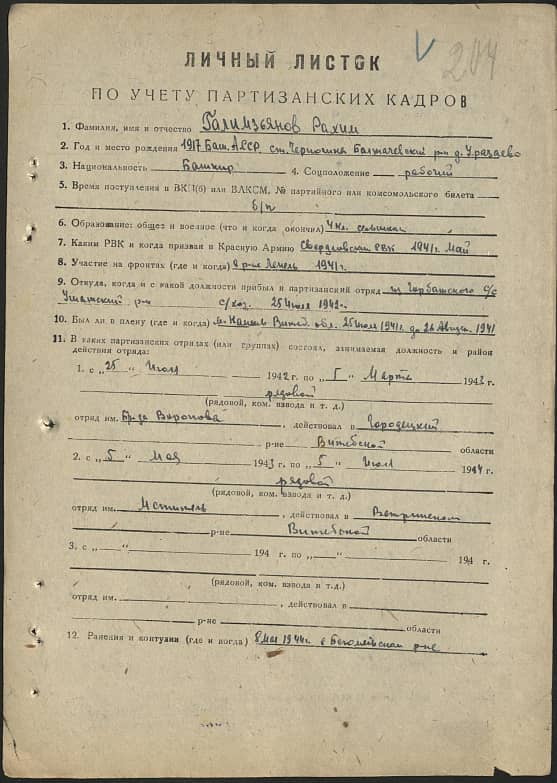 204
ЛИЧНЫЙ ЛИСТОК
ПО УЧЕТУ ПАРТИЗАНСКИХ КАДРОВ
1. Фамилия, имя и отчество Галимзьянов Рахим
2. Год и место рождения 1917 Баш. АССР ст. Чернушка Балтачевский р-н д. Уразаево
3. Национальность Башкир 4. Соцположение рабочий
5. Время поступления в ВКП(б) или ВЛКСМ, № партийного или комсомольского билета
б/п
6. Образование: общее и военное (что и когда окончил) 4 кл. сельская
7. Каким РВК и когда призван в Красную Армию Свердловский РВК 1941 г. Май
8. Участие на фронтах (где и когда) в р-не Лепель 1941 г.
9. Откуда, когда и с какой должности прибыл в партизанский отряд из с/с
Ушачский р-н с/хоз. 25 Июля 1942 г.
10. Был ли в плену (где и когда) Витеб. обл. 25 Июля 1941 г. до 26 Август. 1941
11. В каких партизанских отрядах (или группах) состоял, занимаемая должность и район
действия отряда:
1. с „25“ Июля 1942 г. по „1“ Марта 1943 г.
рядовой
(рядовой, ком. взвода и т. д.)
отряд им. Бр-да Воронова, действовал в Городецкий
р-не Витебской области
2. с „5“ Мая 1943 г. по „5“ Июля 1944 г.
рядовой
(рядовой, ком. взвода и т. д.)
отряд им. Мститель, действовал в Ветринском
р-не Витебской области
3. с „ “ 194 г. по „ “ 194 г.
(рядовой, ком. взвода и т.д.)
отряд им. , действовал в
р-не области
12. Ранения и контузии (где и когда) 8 Мая 1944 г. в Бегомльском р-не